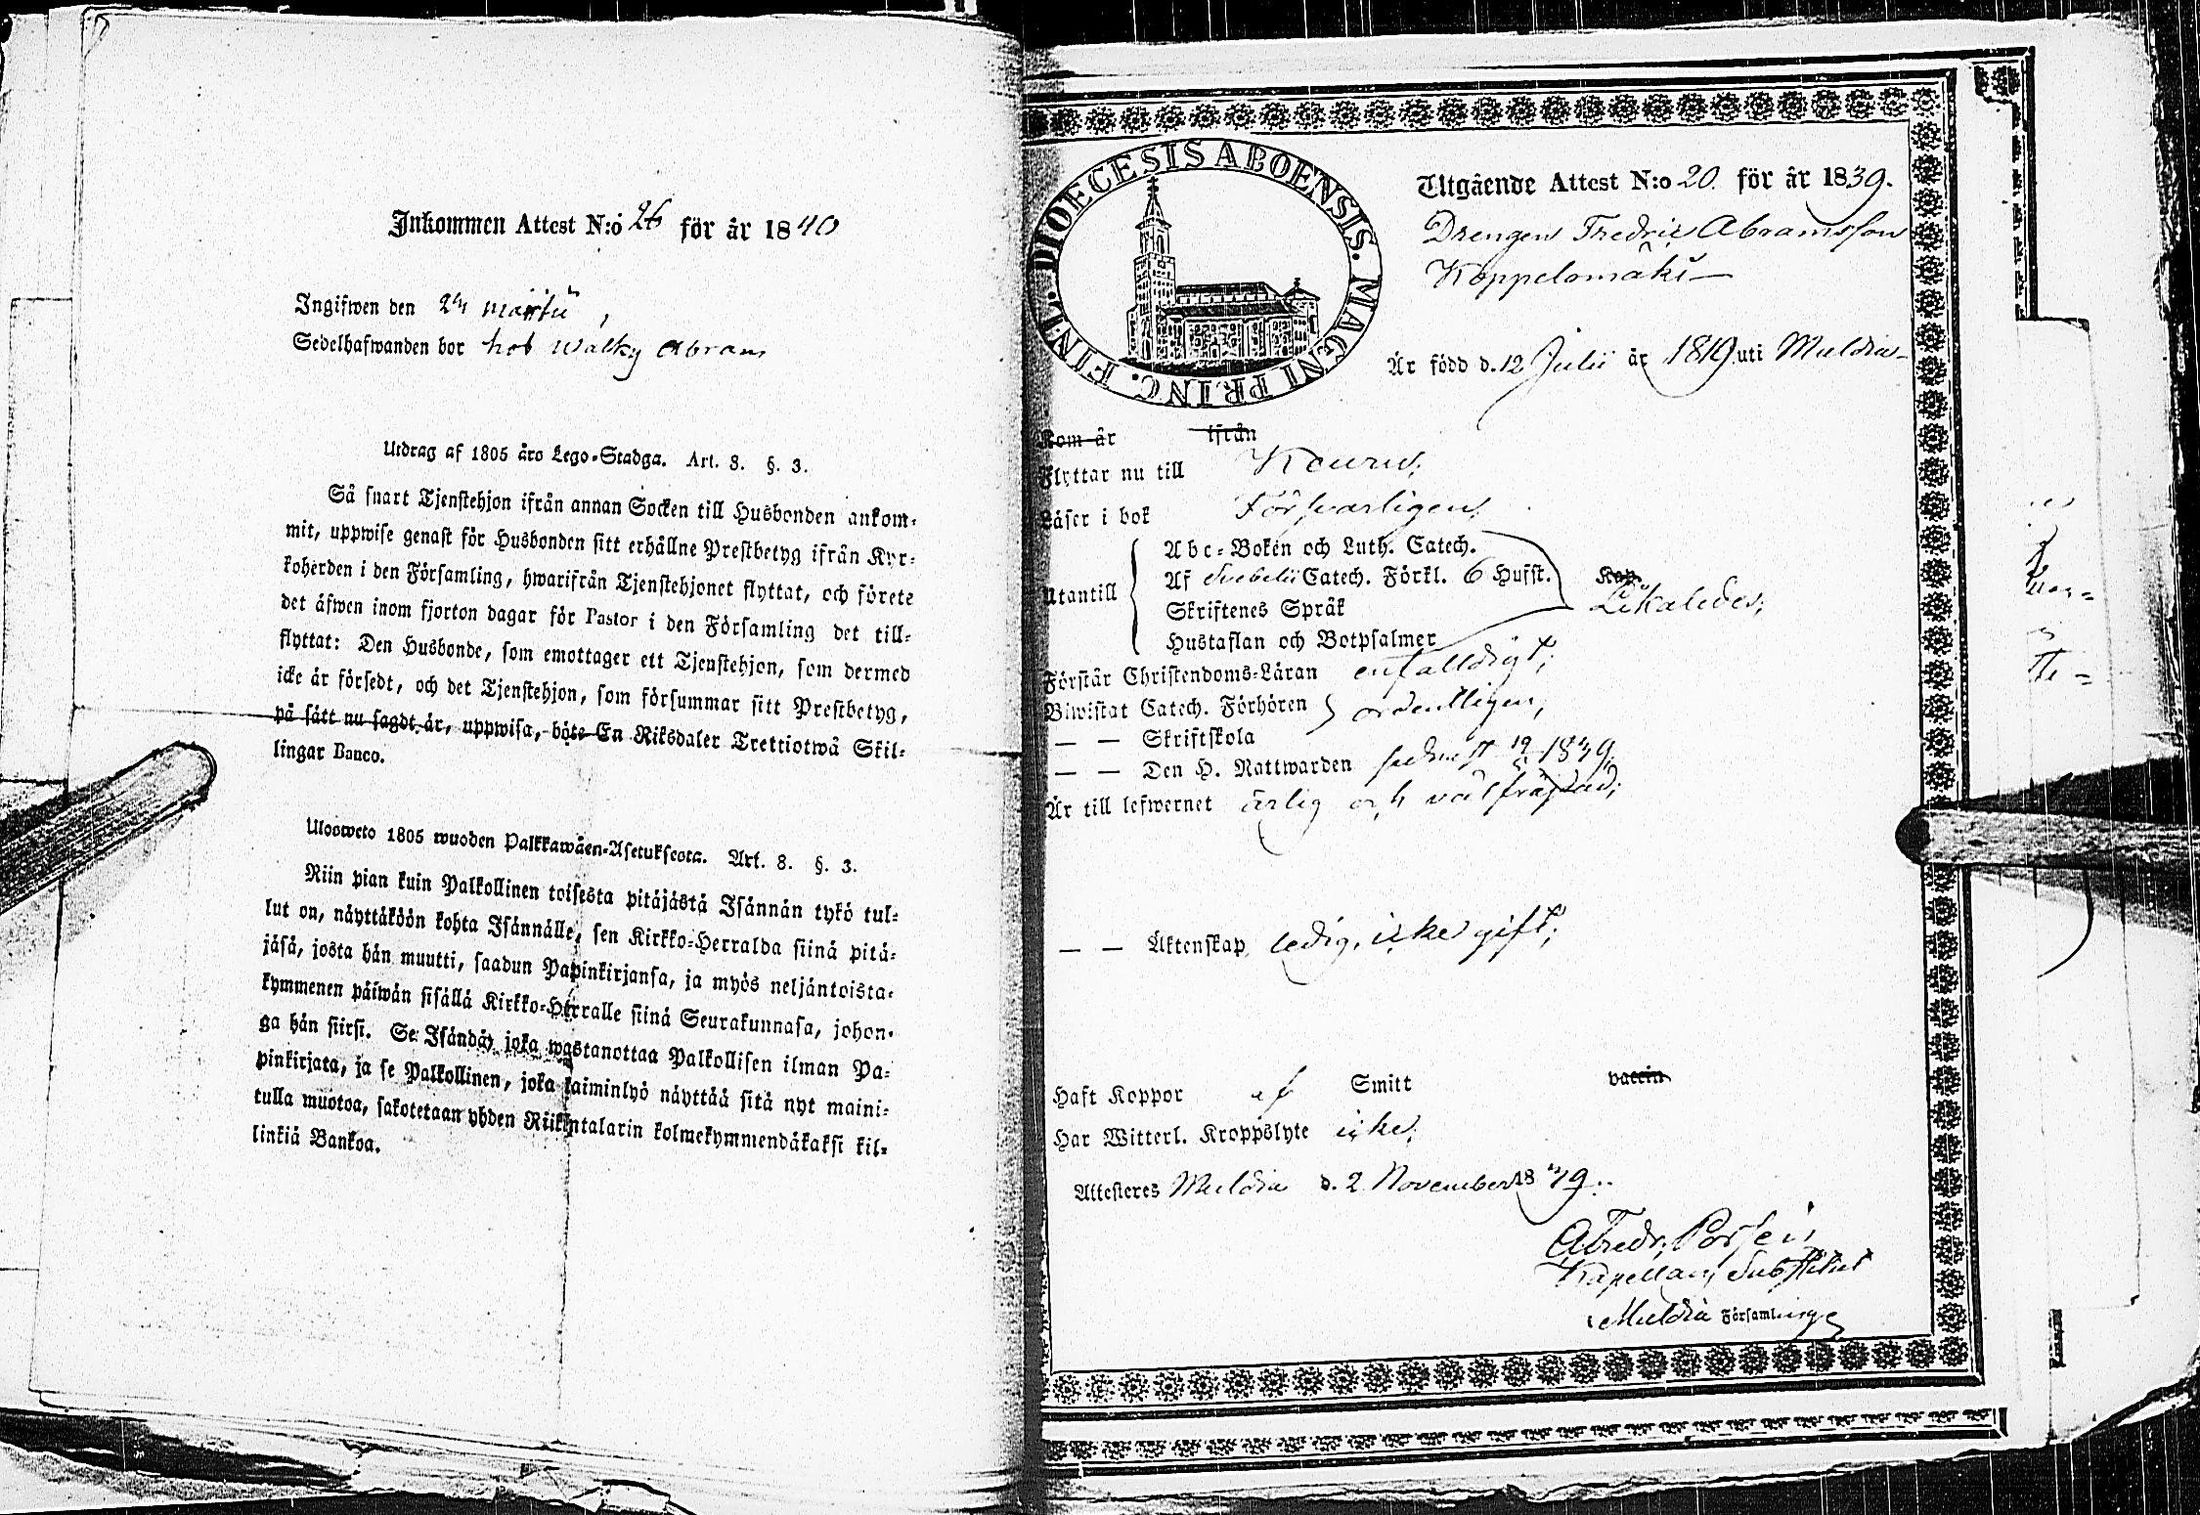 Inkommen Attest N:o 26 för år 1840
Ingifwen den 24 martii,
Sedelhafwanden bor hos Walky Abram
Utdrag af 1805 års Lego-Stadga. Art. 8. §. 3.
Så snart Tjenstehjon ifrån annan Socken till Husbonden ankom-
mit, uppwise genast för Husbonden sitt erhållne Prestbetyg ifrån Kyr-
koherden i den Församling, hwarifrån Tjenstehjonet flyttat, och förete
det äfwen inom fjorton dagar för Pastor i den Församling det till-
flyttat: Den Husbonde, som emottager ett Tjenstehjon, som dermed
icke är försedt, och det Tjenstehjon, som försummar sitt Prestbetyg,
på sätt nu sagdt är, uppwisa, böte En Riksdaler Trettiotwå Skil-
lingar Banco.
Uloosweto 1805 wuoden Palkkawäen-Asetuksesta. Art. 8. §. 3.
Niin pian kuin Palkollinen toisesta pitäjästä Isännän tykö tul-
lut on, näyttäköön kohta Isännälle, sen Kirkko-Herralda siinä pitä-
jäsä, josta hän muutti, saadun Papinkirjansa, ja myös neljäntoista-
kymmenen päiwän sisällä Kirkko-Herralle siinä Seurakunnasa, johon-
ga hän siirsi. Se Isändä, joka wastanottaa Palkollisen ilman Pa-
pinkirjata, ja se Palkollinen, joka laiminlyö näyttää sitä nyt maini-
tulla muotoa, sakotetaan yhden Riikintalarin kolmekymmendäkaksi kil-
linkiä Bankoa.
DIOECESIS ABOENSIS. MAGNI PRINC. FINL.
Utgående Attest N:o 20. för år 1839.
Drengen Fredric Abramsson
Koppelomäki
Är född d. 12 Julii år 1819. uti Muldia
Kom år ifrån
Flyttar nu till Keuru;
Läser i bok Försvarligen;
Utantill
Abc-Boken och Luth. Catech.
Af Svebelii Catech. Förkl. 6 Hufst.
Skriftenes Språk
Hustaflan och Botpsalmer
Kap.
Likaledes;
Förstår Christendoms-Läran enfalldigt;
Biwistat Catech. Förhören
ordentligen;
— — Skriftskola
— — Den H. Nattwarden sednast 1839;
Är till lefwernet ärlig och välfräjdad;
— — Äktenskap ledig, icke gift;
Haft Koppor af Smitt vaccin
Har Witterl. Kroppslyte icke;
Attesteres Muldia d. 2 November 1839.
Kapellans Substitut
Muldia Församling